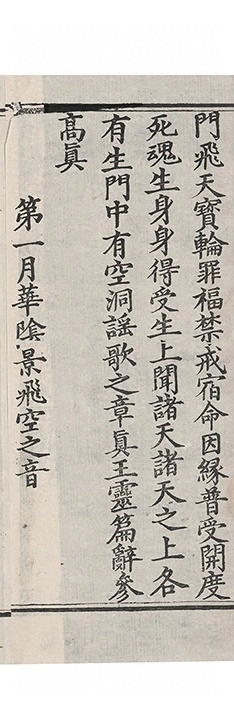 門飛天寶輪罪福禁戒宿命因緣普受開度
死魂生身身得受生上聞諸天諸天之上各
有生門中有空洞謠歌之章真王靈篇辭參
高真
第一月華陰景飛空之音